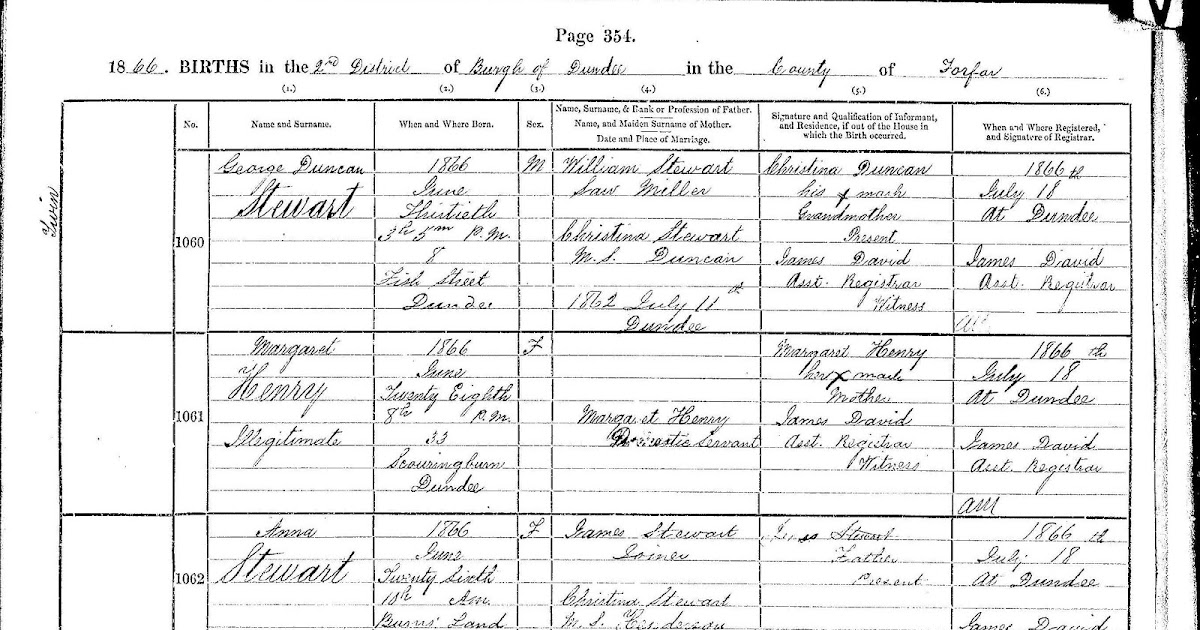 Page 354.
1866. BIRTHS in the 2nd District of Burgh of Dundee in the County of Forfar
(1.) (2.) (3.) (4.) (5.) (6.)
No.
Name and Surname.
When and Where Born.
Sex.
Name, Surname, & Rank or Profession of Father.
Name, and Maiden Surname of Mother.
Date and Place of Marriage.
Signature and Qualification of Informant,
and Residence, if out of the House in
which the Birth occurred.
When and Where Registered,
and Signature of Registrar.
Twin
1060
George Duncan
Stewart
1866
June
Thirtieth
3h 5m P.M.
8
Fish Street
Dundee
M
William Stewart
Saw Miller
Christina Stewart
M.S. Duncan
1862 July 11th
Dundee
Christina Duncan
his x mark
Grandmother
Present
James David
Asst. Registrar
Witness
1866
July 18th
At Dundee
James David
Asst. Registrar
1061
Margaret
Henry
Illegitimate
1866
June
Twenty Eighth
8h P.M.
33
Scouringburn
Dundee
F
Margaret Henry
Domestic Servant
Margaret Henry
her x mark
Mother
James David
Asst. Registrar
Witness
1866
July 18th
At Dundee
James David
Asst. Registrar
1062
Anna
Stewart
1866
June
Twenty Sixth
10h Am.
Burns' Land
F
James Stewart
Joiner
Christina Stewart
M.S. Henderson
Stewart
Father
Present
1866
July 18th
At Dundee
James David